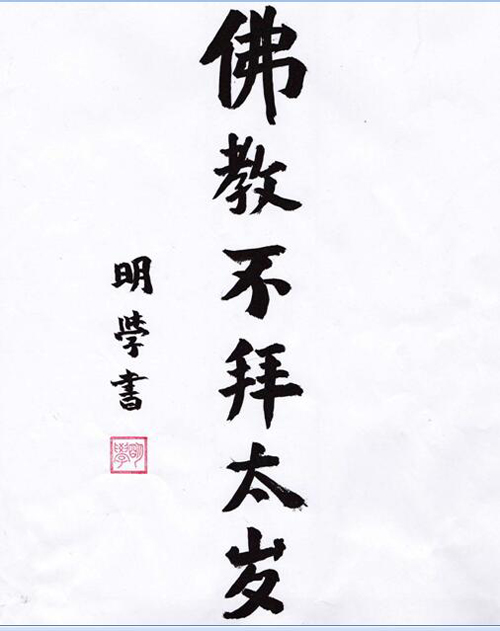 佛教不拜太岁
明学書
明學